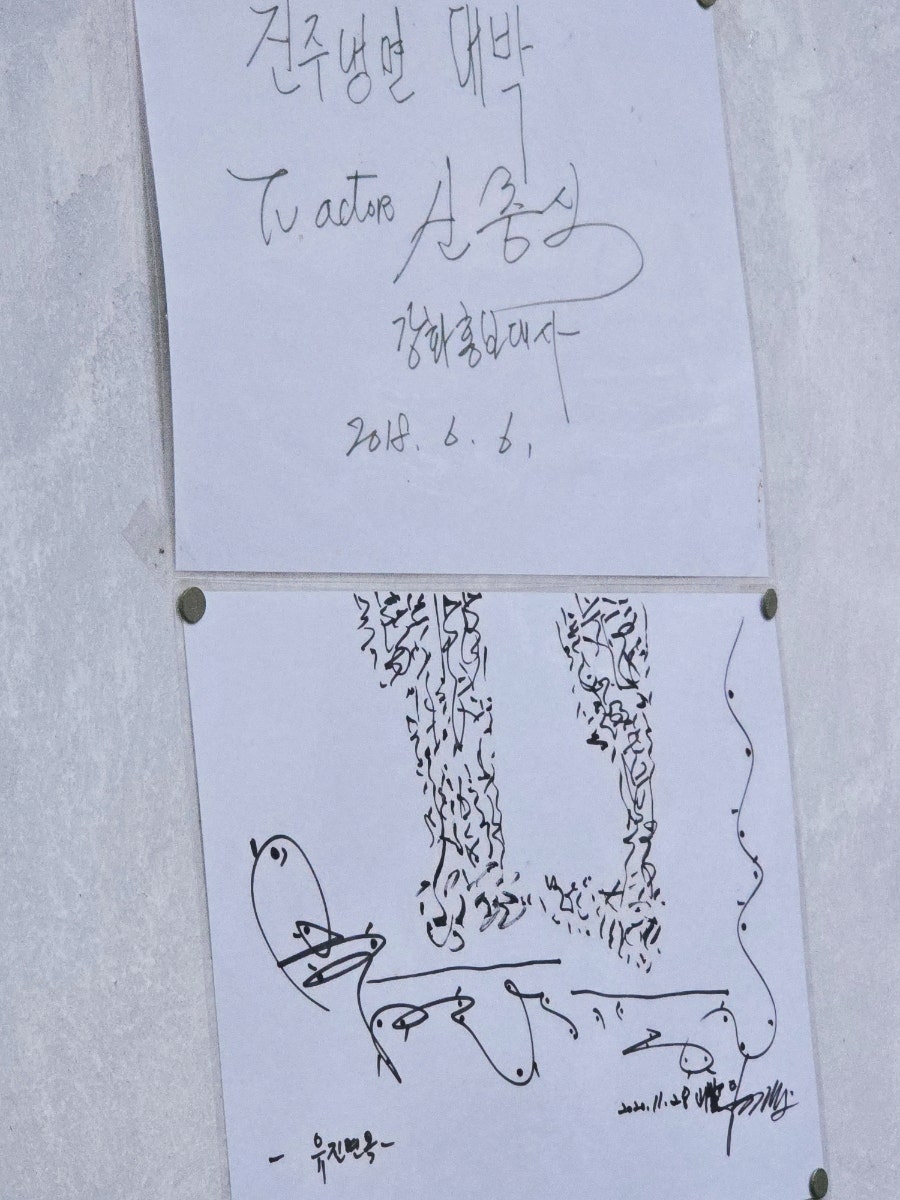 진주냉면 대박
TV. actor 신충식
강화홍보대사
2018. 6. 6.
2020.11.29
- 유진면옥 -